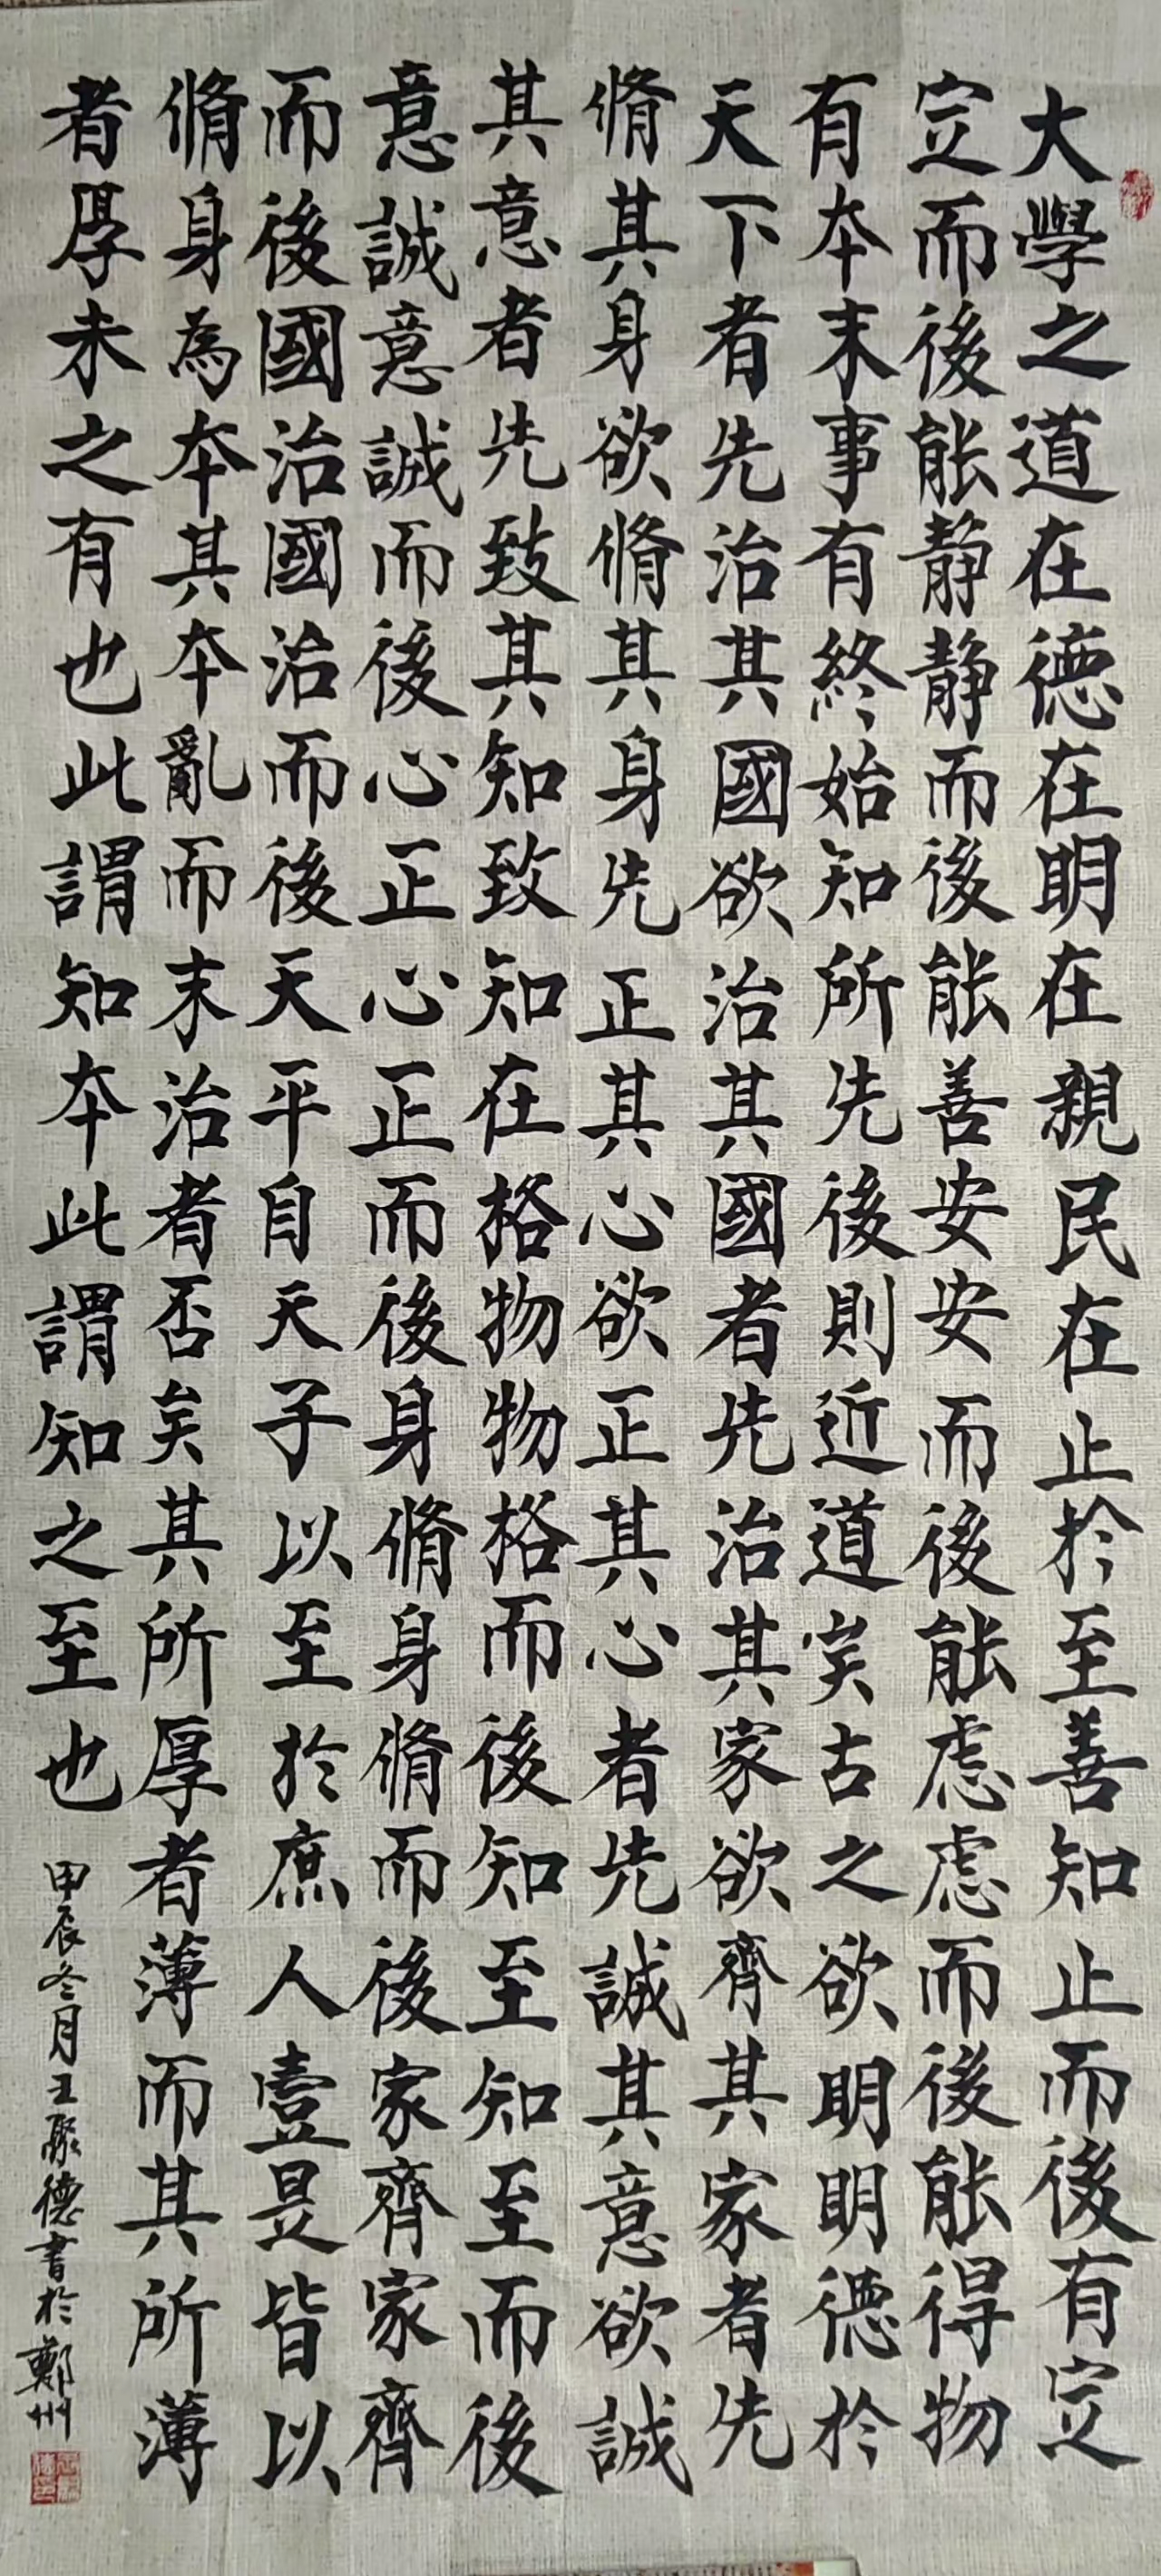 大學之道在德在明在親民在止於至善知止而後有定
定而後能静静而後能善安安而後能虑虑而後能得物
有本末事有終始知所先後則近道矣古之欲明明德於
天下者先治其國欲治其國者先治其家欲齊其家者先
脩其身欲脩其身先正其心欲正其心者先誠其意欲誠
其意者先致其知致知在格物物格而後知至知至而後
意誠意誠而後心正心正而後身脩身脩而後家齊家齊
而後國治國治而後天平自天子以至於庶人壹是皆以
脩身為本其本亂而末治者否矣其所厚者薄而其所薄
者厚未之有也此謂知本此謂知之至也
甲辰冬月王聚德書於鄭州